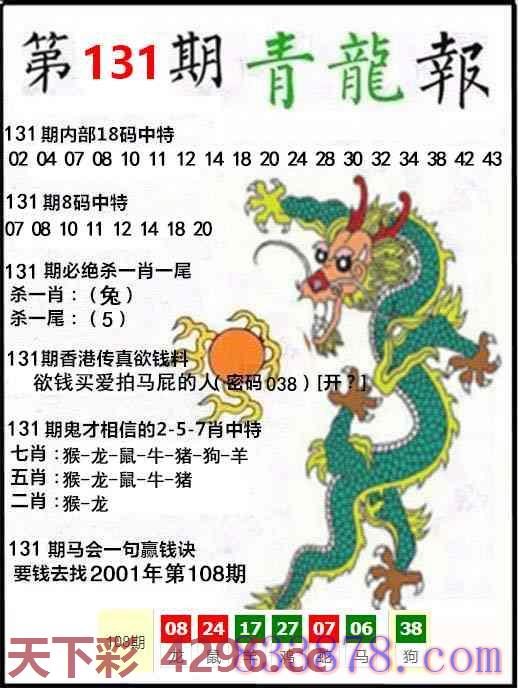 第131期青龍報
131期内部18码中特
02 04 07 08 10 11 12 14 18 20 24 28 30 32 34 38 42 43
131期8码中特
07 08 10 11 12 14 18 20
131期必绝杀一肖一尾
杀一肖：（兔）
杀一尾：（5）
131期香港传真欲钱料
欲钱买爱拍马屁的人（密码038）[开？]
131期鬼才相信的2-5-7肖中特
七肖：猴-龙-鼠-牛-猪-狗-羊
五肖：猴-龙-鼠-牛-猪
二肖：猴-龙
131期马会一句赢钱诀
要钱去找2001年第108期
108期
08 24 17 27 07 06 38
龙 鼠 羊 鸡 蛇 马 狗
天下彩